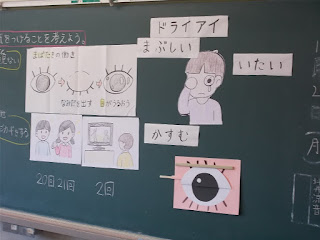 をつけることを考えよう。
ドライアイ
まぶしい
いたい
まばたきの働き
なみだを出す
目がうるおう
かすむ
20回21回
2回